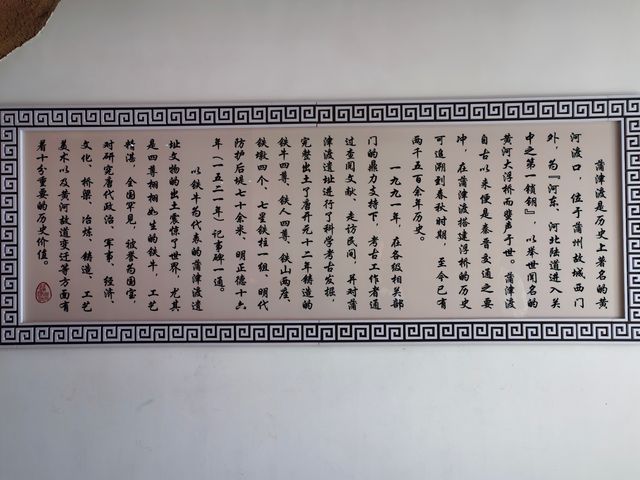 蒲津渡是历史上著名的黄
河渡口，位于蒲州故城西门
外，为『河东、河北陆道进入关
中之第一锁钥』，以举世闻名的
黄河大浮桥而蜚声于世。蒲津渡
自古以来便是秦晋交通之要
冲，在蒲津渡搭建浮桥的历史
可追溯到春秋时期，至今已有
两千五百余年历史。
一九九一年，在各级相关部
门的鼎力支持下，考古工作者通
过查阅文献、走访民间，并对蒲
津渡遗址进行了科学考古发掘，
完整出土了唐开元十二年铸造的
铁牛四尊、铁人四尊、铁山两座、
铁墩四个、七星铁柱一组、明代
防护后堤七十余米、明正德十六
年（一五二一年）记事碑一通。
以铁牛为代表的蒲津渡遗
址文物的出土震惊了世界，尤其
是四尊栩栩如生的铁牛，工艺
精湛，全国罕见，被誉为国宝，
对研究唐代政治、军事、经济、
文化、桥梁、冶炼、铸造、工艺
美术以及黄河故道变迁等方面有
着十分重要的历史价值。